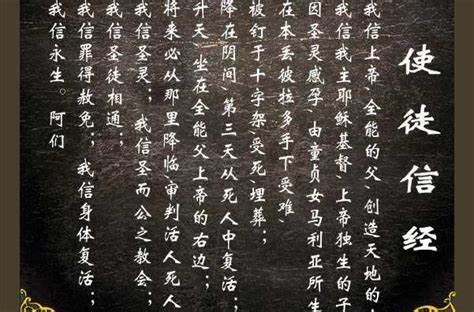 使徒信经
我信上帝、全能的父、创造天地的
我信我主耶稣基督、上帝独生的子
因圣灵感孕、由童贞女马利亚所生
在本丢彼拉多手下受难、
被钉于十字架、受死埋葬；
降在阴间、第三天从死人中复活；
升天、坐在全能父上帝的右边；
将来必从那里降临、审判活人死人
我信圣灵； 我信圣而公之教会；
我信圣徒相通；
我信罪得赦免； 我信身体复活；
我信永生。 阿们